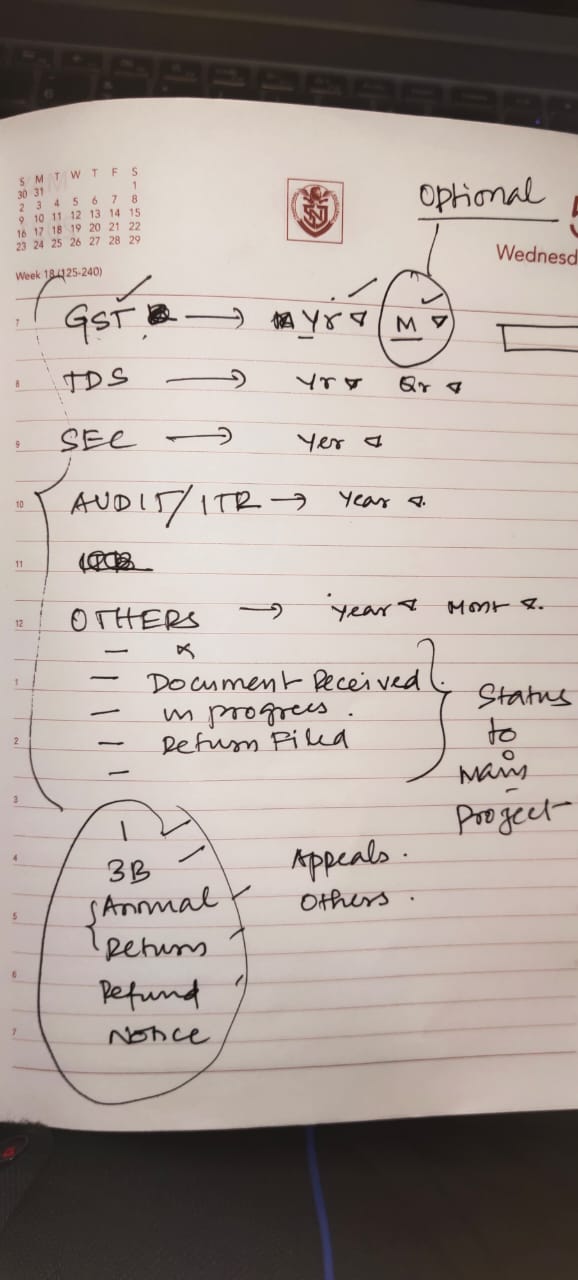 S M T W T F S
30 31 1
2 3 4 5 6 7 8
9 10 11 12 13 14 15
16 17 18 19 20 21 22
23 24 25 26 27 28 29
Week 18 (125-240)
Optional
5
Wednesd
7 GST → Yr M
8 TDS → Yr Qr
9 SEC → Yer
10 AUDIT/ITR → Year
11
12 OTHERS → Year Mont
1 — Document Received
— in progress.
2 — Return Filed
—
Status
to
Main
Project
3
1
4 3B
5 { Annual
Return
6 Refund
7 Notice
Appeals.
Others.